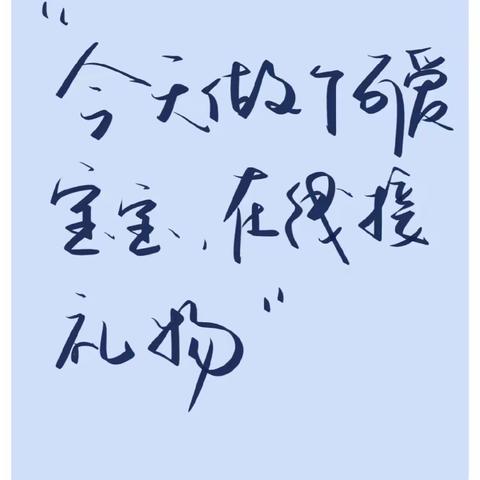 “今天做个可爱
宝宝,在线接
礼物”